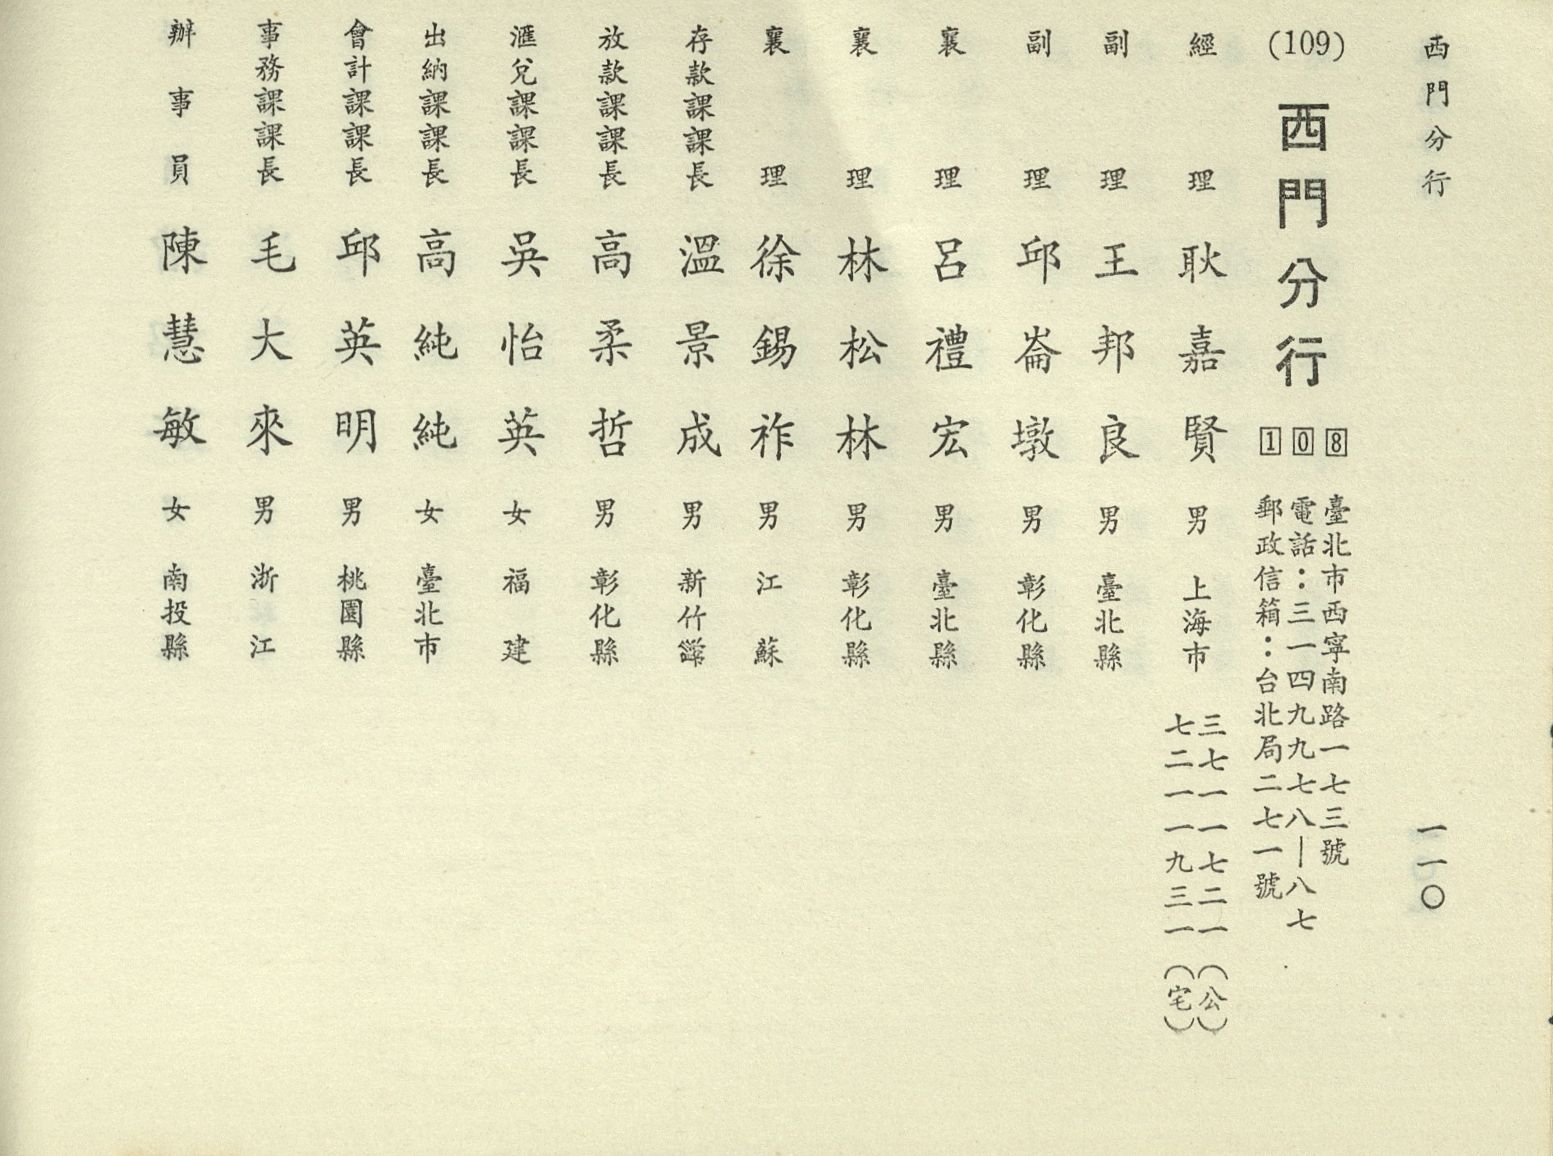 西門分行
一一〇
(109)
西門分行
108
臺北市西寧南路一七三號
電話：三一四九九七八｜八七
郵政信箱：台北局二七一號
經理 耿嘉賢 男 上海市
三七一一七二一(公)
七二一一九三一(宅)
副理 王邦良 男 臺北縣
副理 邱崙墩 男 彰化縣
襄理 呂禮宏 男 臺北縣
襄理 林松林 男 彰化縣
襄理 徐錫祚 男 江蘇
存款課課長 溫景成 男 新竹縣
放款課課長 高柔哲 男 彰化縣
滙兌課課長 吳怡英 女 福建
出納課課長 高純純 女 臺北市
會計課課長 邱英明 男 桃園縣
事務課課長 毛大來 男 浙江
辦事員 陳慧敏 女 南投縣